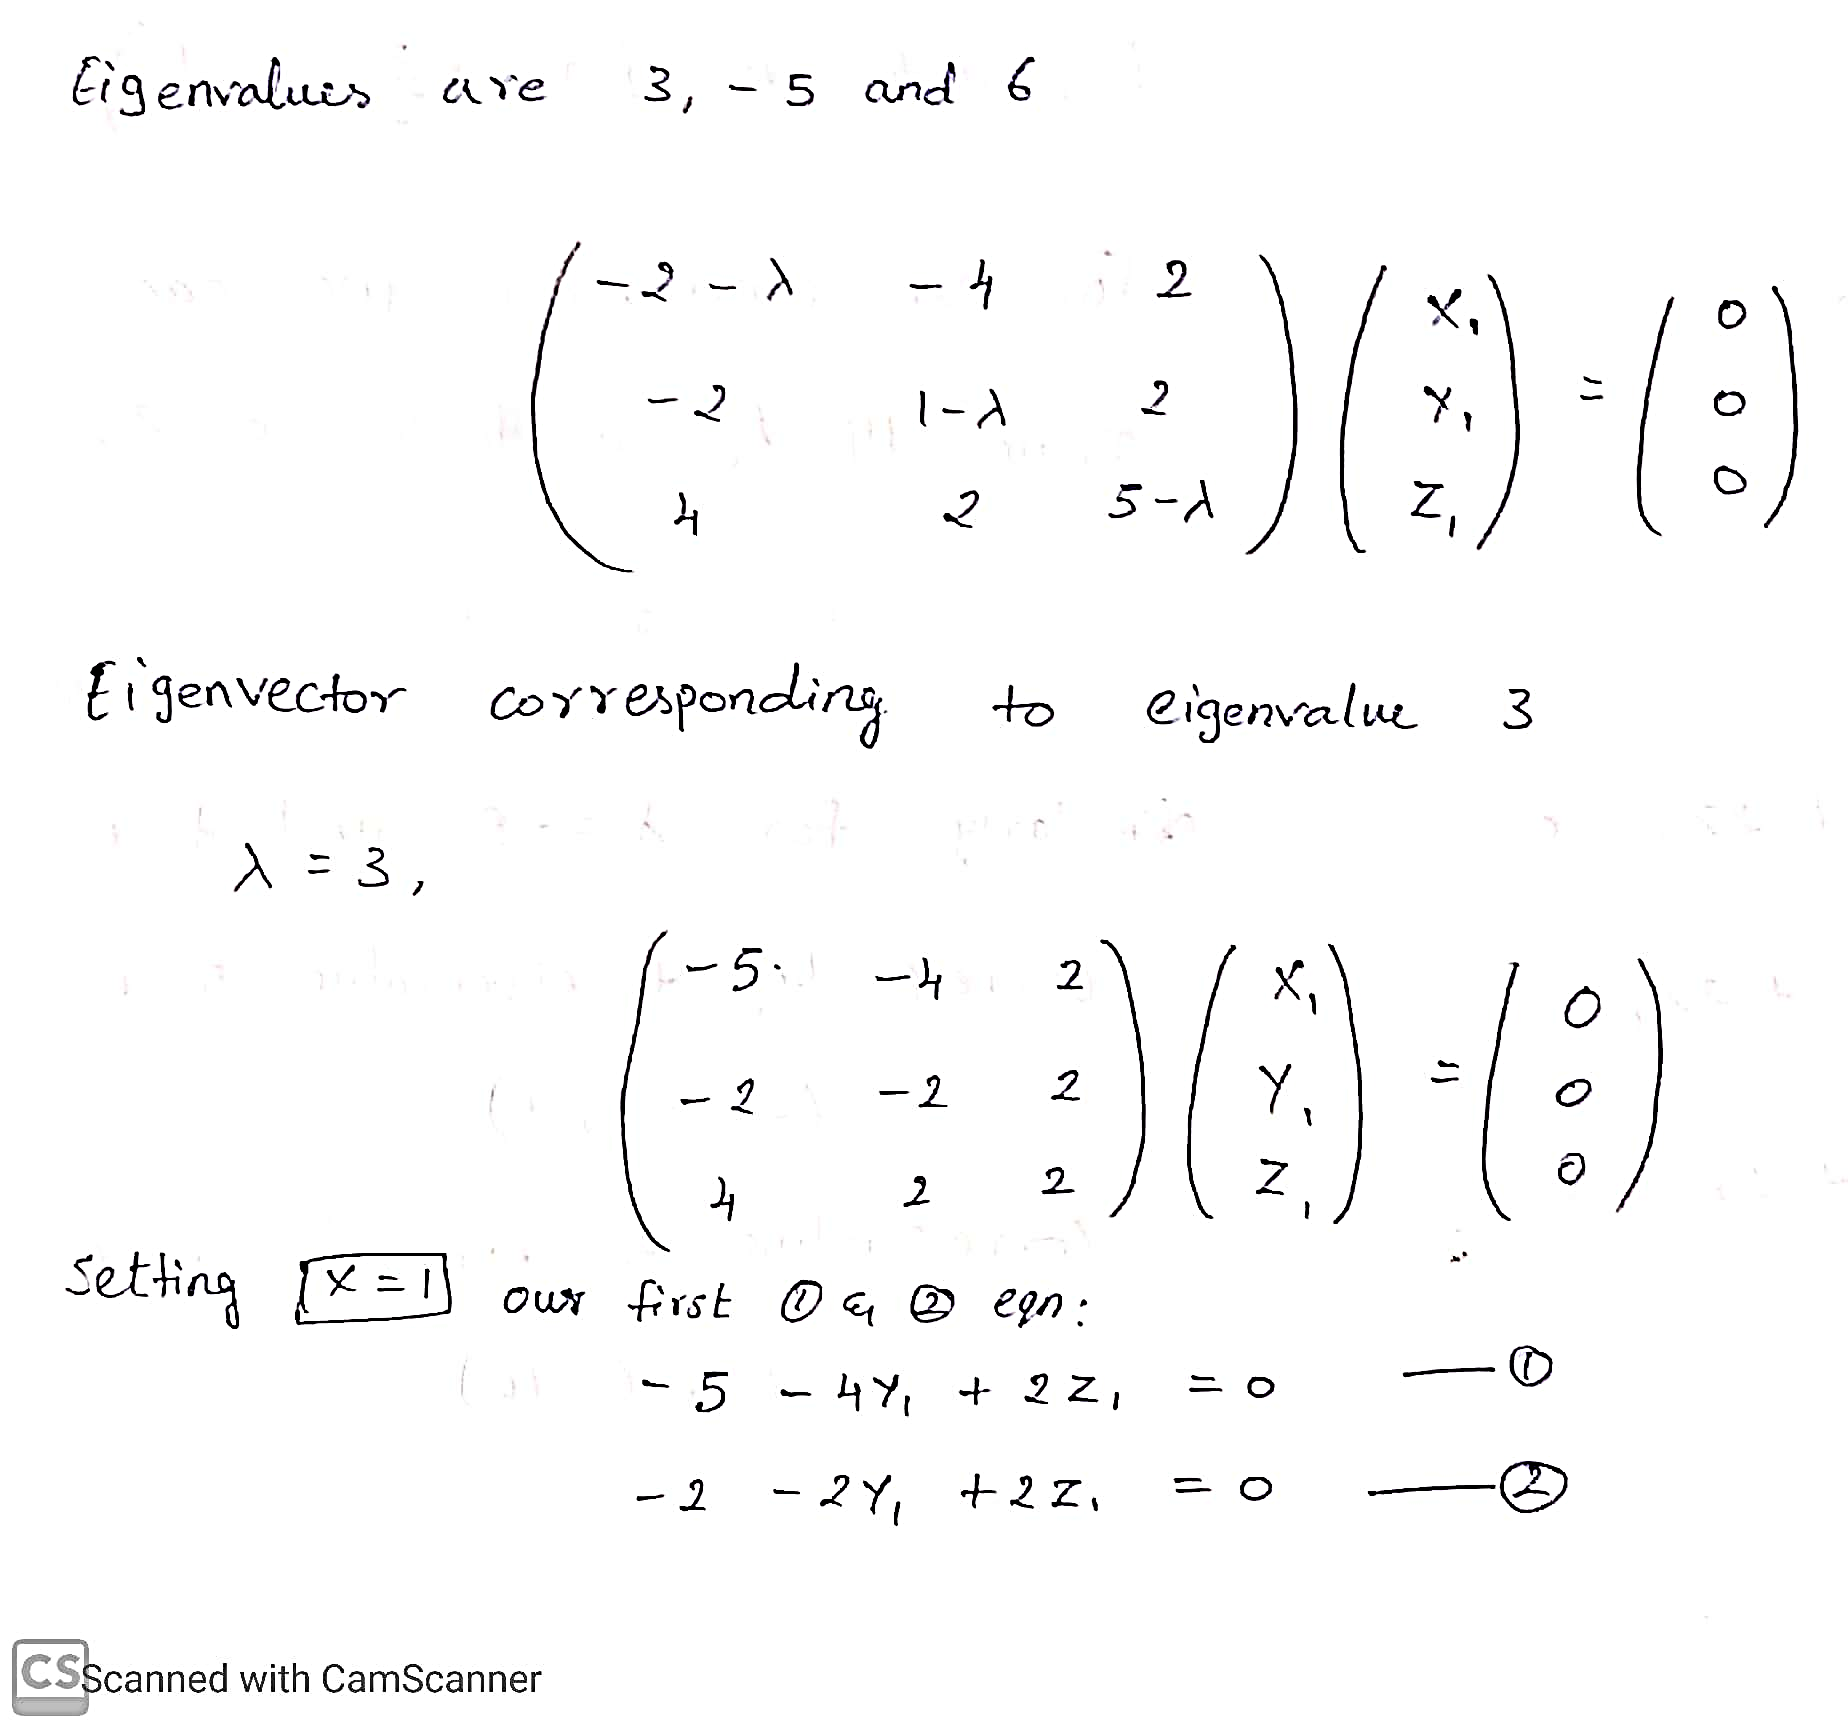 Eigenvalues are 3, - 5 and 6
-2-λ -4 2 X₁ 0
-2 1-λ 2 Y₁ = 0
4 2 5-λ Z₁ 0
Eigenvector corresponding to eigenvalue 3
λ = 3,
-5 -4 2 X₁ 0
-2 -2 2 Y₁ = 0
4 2 2 Z₁ 0
Setting X=1 our first ① & ② eqn:
-5 - 4Y₁ + 2Z₁ = 0 —①
-2 - 2Y₁ + 2Z₁ = 0 —②
CS Scanned with CamScanner